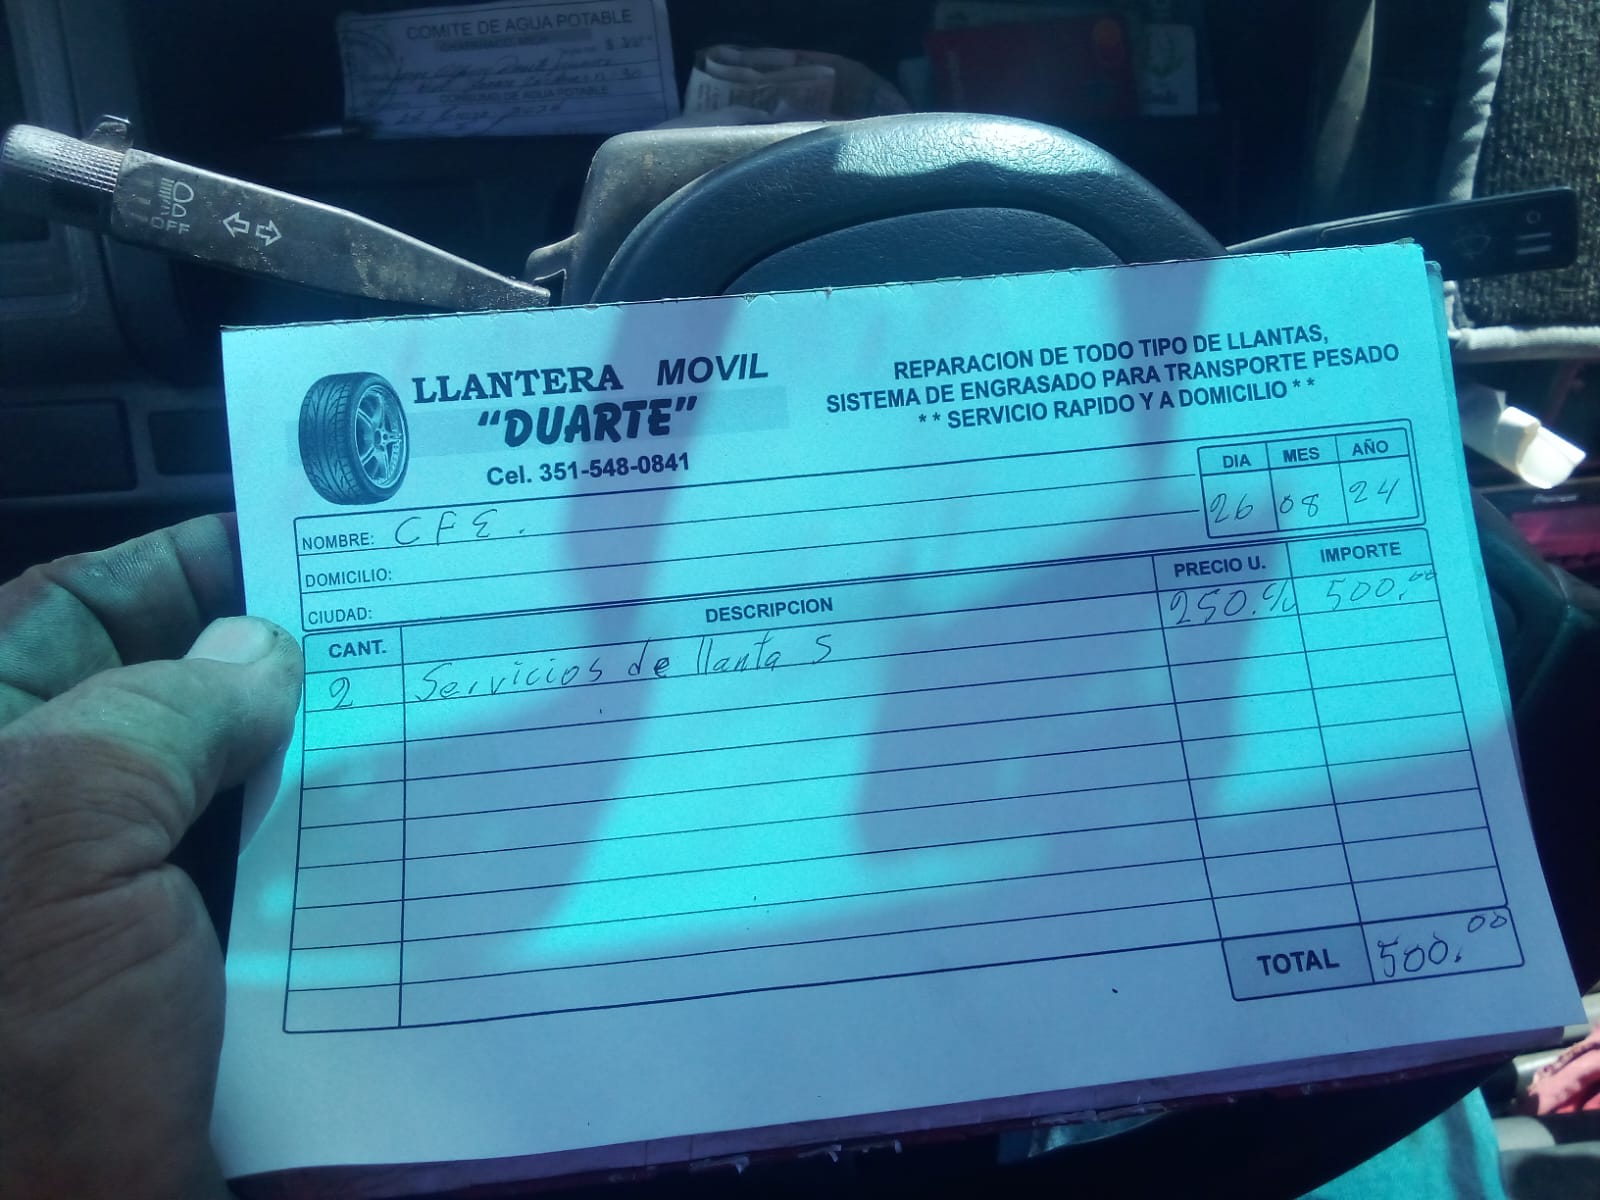 COMITE DE AGUA POTABLE
CONSUMO DE AGUA POTABLE
OFF
LLANTERA MOVIL
"DUARTE"
Cel. 351-548-0841
REPARACION DE TODO TIPO DE LLANTAS,
SISTEMA DE ENGRASADO PARA TRANSPORTE PESADO
** SERVICIO RAPIDO Y A DOMICILIO **
DIA MES AÑO
26 08 24
NOMBRE: CFE.
DOMICILIO:
CIUDAD:
CANT. DESCRIPCION PRECIO U. IMPORTE
2 Servicios de llantas 250.00 500.00
TOTAL 500.00